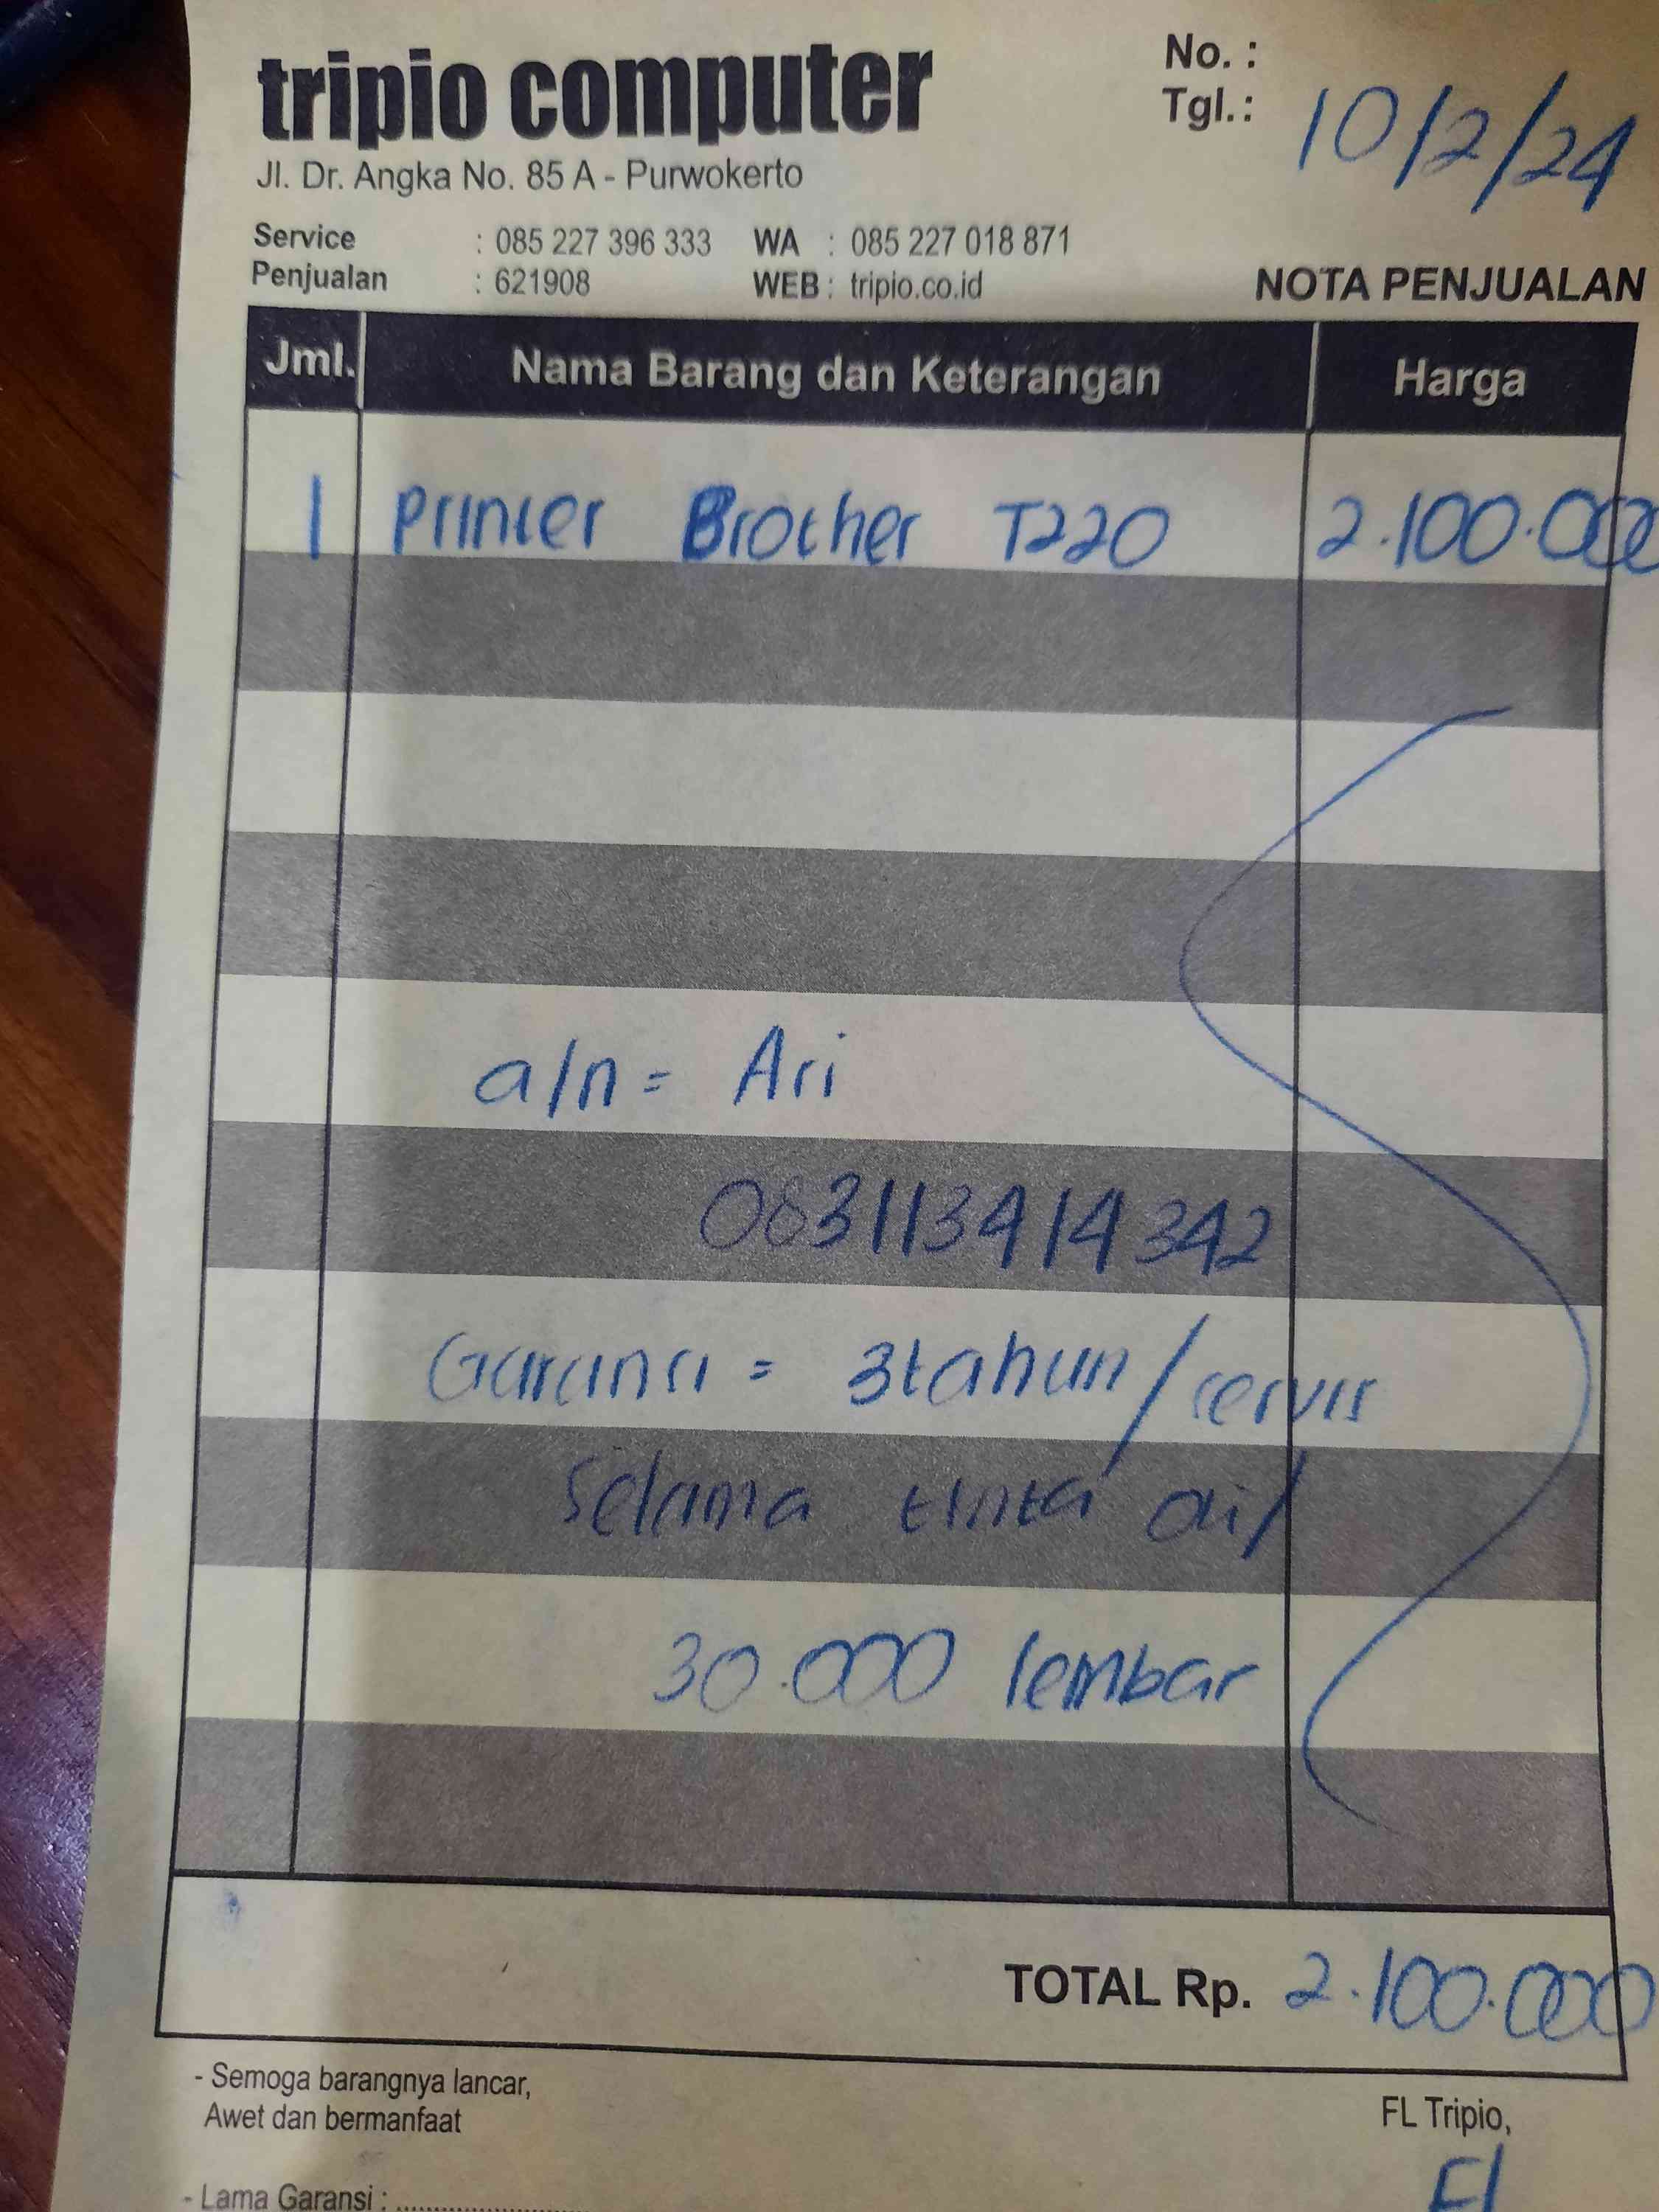 tripio computer
Jl. Dr. Angka No. 85 A - Purwokerto
No. :
Tgl. : 10/2/24
Service : 085 227 396 333 WA : 085 227 018 871
Penjualan : 621908 WEB : tripio.co.id
NOTA PENJUALAN
Jml. Nama Barang dan Keterangan Harga
1 Printer Brother T220 2.100.000
a/n = Ari
083113414342
Garansi = 3 tahun / servis
Selama tinta ori
30.000 lembar
TOTAL Rp. 2.100.000
- Semoga barangnya lancar,
Awet dan bermanfaat
FL Tripio,
- Lama Garansi : ....................
Fl